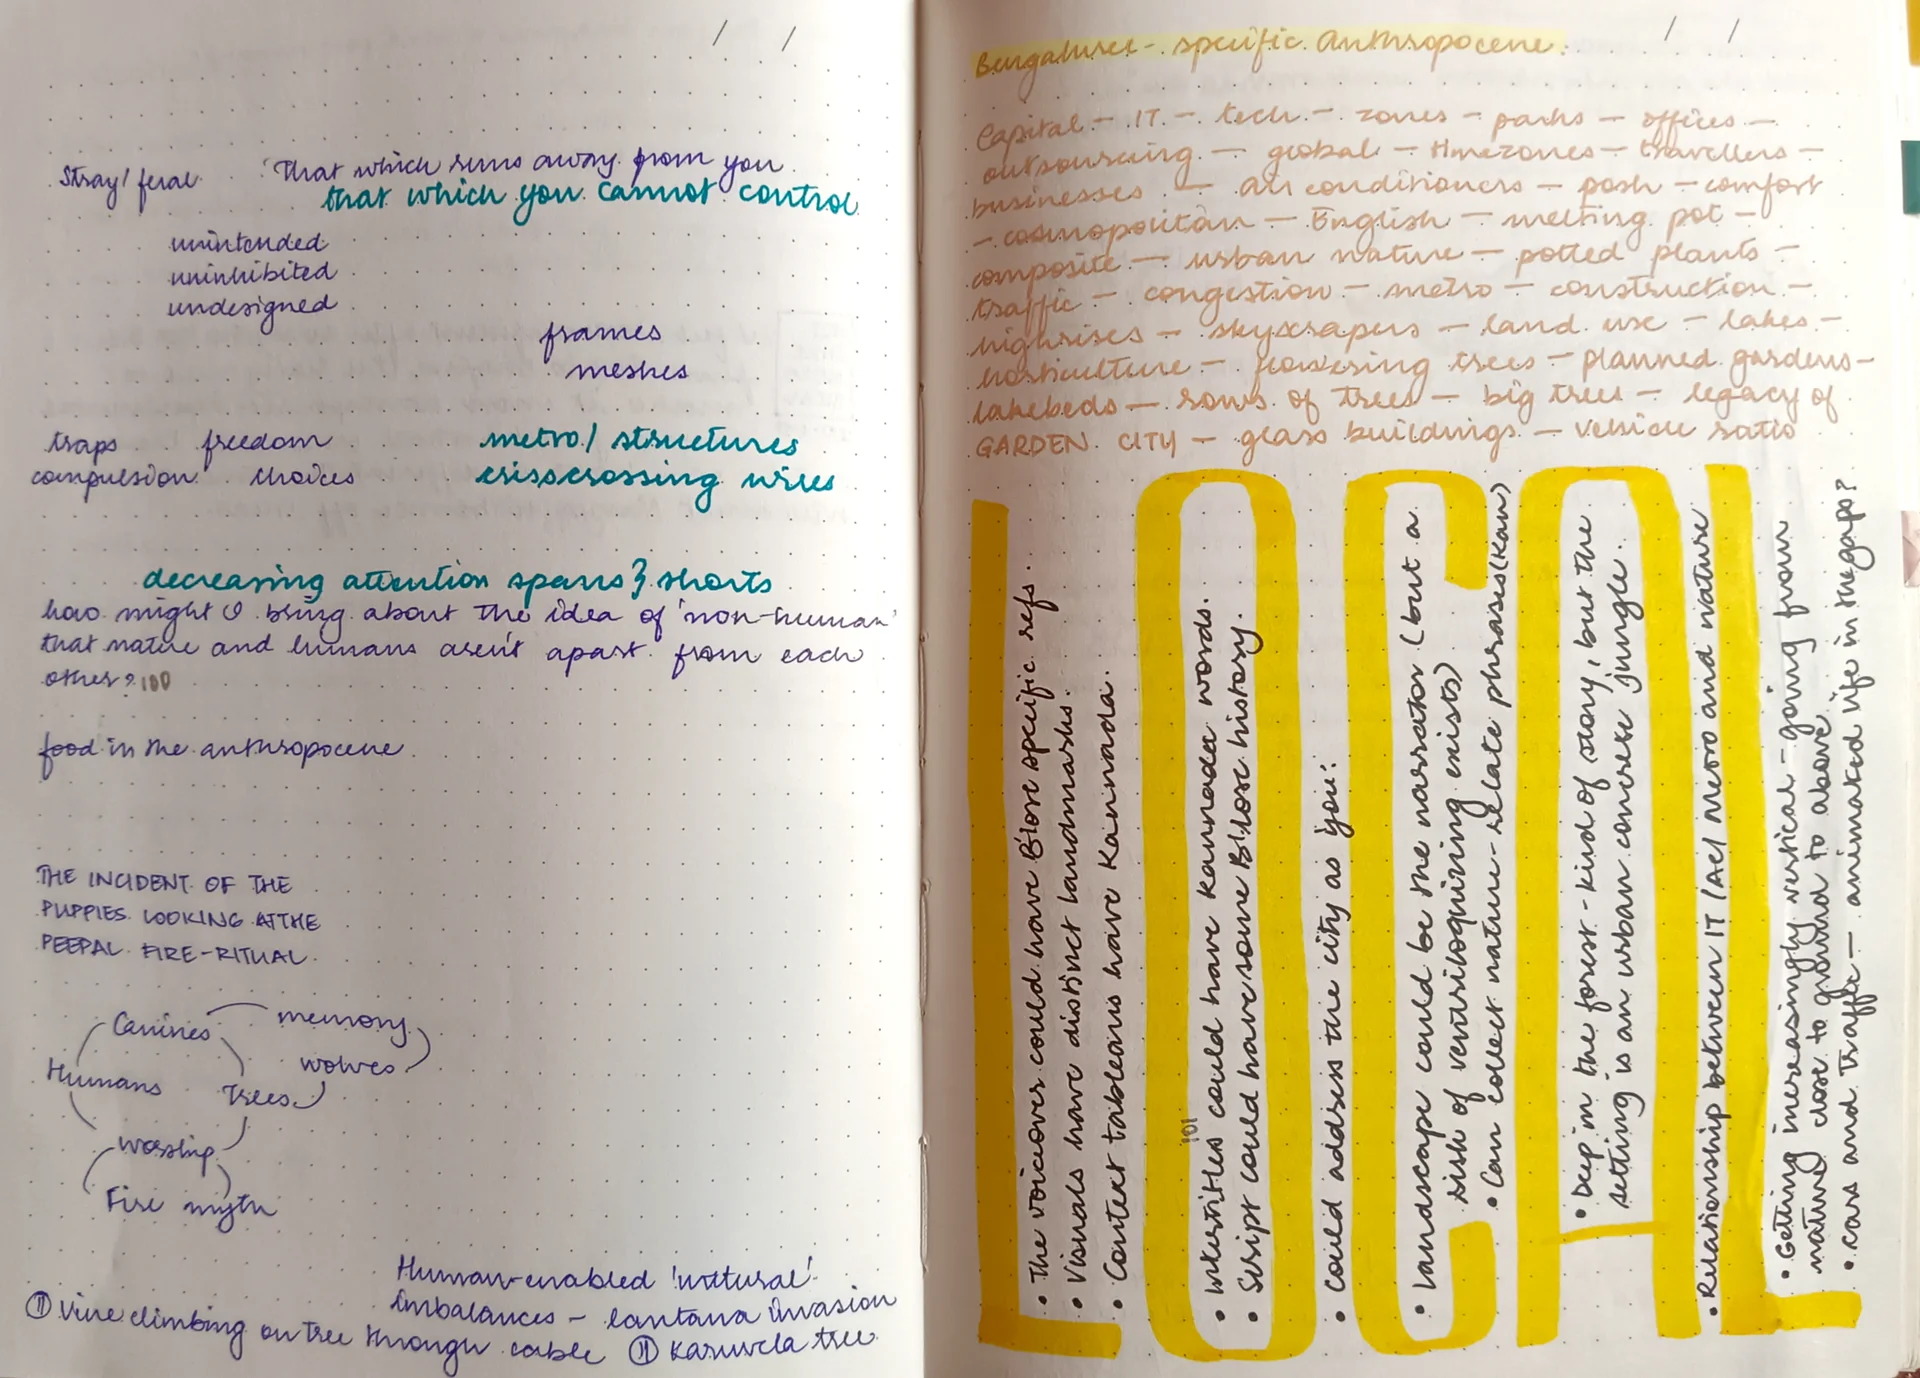 / /
Stray/feral
That which runs away from you
that which you cannot control
unintended
uninhibited
undesigned
frames
meshes
traps freedom
compulsion choices
metro/structures
crisscrossing wires
decreasing attention spans } shorts
how might I bring about the idea of 'non-human'
that nature and humans aren't apart from each
other? 100
food in the anthropocene
THE INCIDENT OF THE
PUPPIES LOOKING AT THE
PEEPAL FIRE-RITUAL.
Canines memory
wolves
Humans Trees
worship
Fire myth
Human-enabled 'natural'
imbalances – lantana invasion
⑪ Vine climbing on tree through cable ⑪ Karuvela tree
/ /
specific Anthropocene.
Capital – IT – tech – zones – parks – offices –
outsourcing – global – timezones – travellers –
businesses – air conditioners – posh – comfort
– cosmopolitan – English – melting pot –
composite – urban nature – potted plants –
traffic – congestion – metro – construction –
highrises – skyscrapers – land use – lakes –
horticulture – flowering trees – planned gardens –
lakebeds – rows of trees – big trees – legacy of
GARDEN CITY – glass buildings – vehicle ratio
LOCAL
• The voiceover could have B'lore specific refs.
• Visuals have distinct landmarks.
• Context tableaus have Kannada.
• Intertitles could have Kannada words.
• Script could have some B'lore history.
• Could address the city as 'you'.
• Landscape could be the narrator (but a
risk of ventriloquizing exists)
• Can collect nature-relate phrases (Kan)
• Deep in the forest - kind of story, but the
setting is an urban concrete jungle.
• Relationship between IT/AC/Metro and nature
• Getting increasingly vertical - going from
nature close to ground to above
• cars and traffic – animated life in the gaps?
101